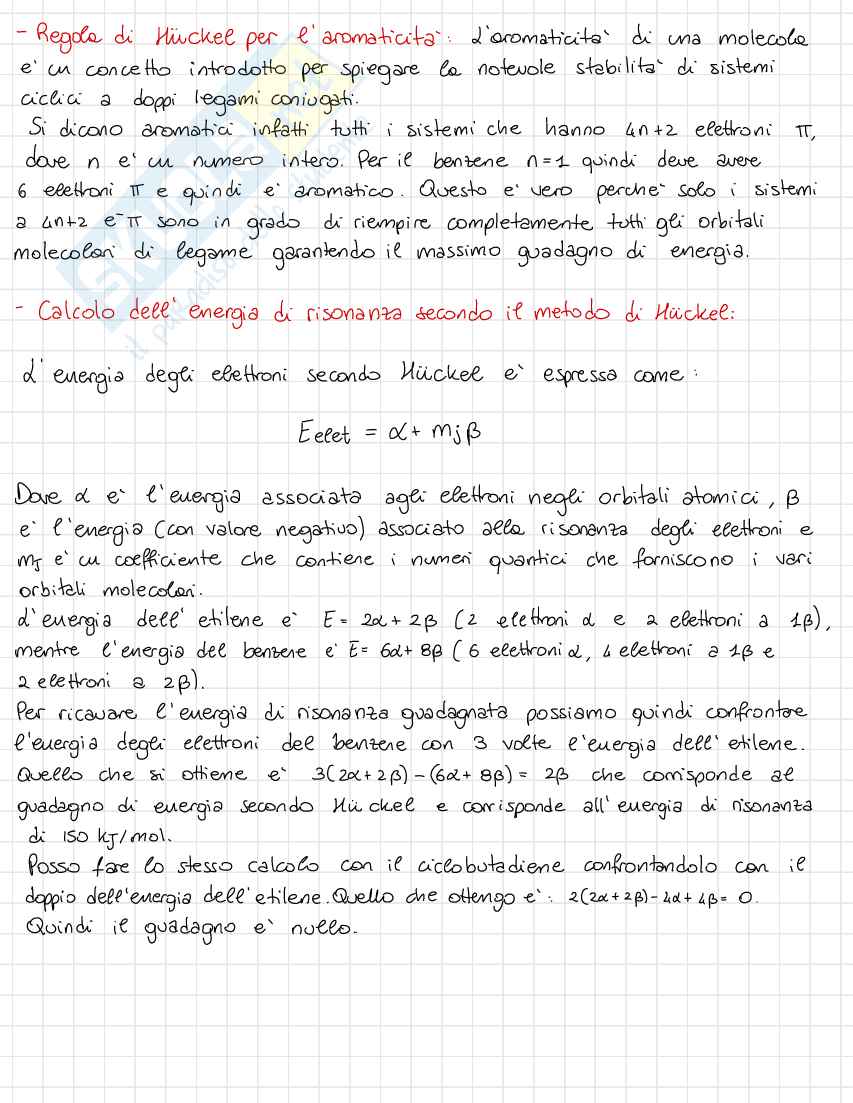 - Regola di Hückel per l'aromaticità: L'aromaticità di una molecola
e' un concetto introdotto per spiegare la notevole stabilità di sistemi
ciclici a doppi legami coniugati.
Si dicono aromatici infatti tutti i sistemi che hanno 4n+2 elettroni π,
dove n e' un numero intero. Per il benzene n=1 quindi deve avere
6 elettroni π e quindi e' aromatico. Questo e' vero perche' solo i sistemi
a 4n+2 e⁻π sono in grado di riempire completamente tutti gli orbitali
molecolari di legame garantendo il massimo guadagno di energia.
- Calcolo dell'energia di risonanza secondo il metodo di Hückel:
L'energia degli elettroni secondo Hückel e' espressa come:
Eelet = α + mjβ
Dove α e' l'energia associata agli elettroni negli orbitali atomici, β
e' l'energia (con valore negativo) associato alla risonanza degli elettroni e
mj e' un coefficiente che contiene i numeri quantici che forniscono i vari
orbitali molecolari.
L'energia dell'etilene e' E = 2α + 2β (2 elettroni α e 2 elettroni a 1β),
mentre l'energia del benzene e' E = 6α + 8β (6 elettroni α, 4 elettroni a 1β e
2 elettroni a 2β).
Per ricavare l'energia di risonanza guadagnata possiamo quindi confrontare
l'energia degli elettroni del benzene con 3 volte l'energia dell'etilene.
Quello che si ottiene e' 3(2α + 2β) - (6α + 8β) = 2β che corrisponde al
guadagno di energia secondo Hückel e corrisponde all'energia di risonanza
di 150 kJ/mol.
Posso fare lo stesso calcolo con il ciclobutadiene confrontandolo con il
doppio dell'energia dell'etilene. Quello che ottengo e': 2(2α + 2β) - 4α + 4β = 0.
Quindi il guadagno e' nullo.